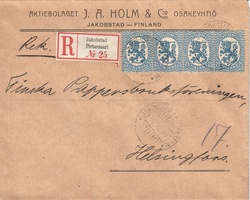 AKTIEBOLAGET J. A. HOLM & Co OSAKEYHTIÖ
JAKOBSTAD — FINLAND
Rek.
R
Jakobstad
Pietarsaari
№ 25
Finska Pappersbruksföreningen
17
Helsingfors.